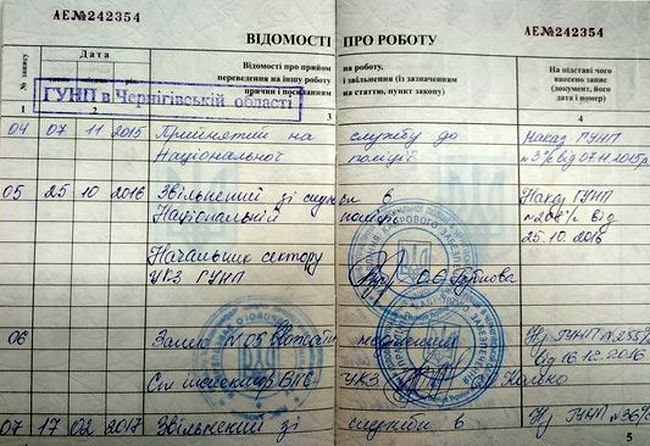 АЕ№242354
АЕ№242354
ВІДОМОСТІ ПРО РОБОТУ
№ запису
Дата
число місяць рік
Відомості про прийом на роботу,
переведення на іншу роботу і звільнення (із зазначенням
причин і посиланням на статтю, пункт закону)
На підставі чого
внесено запис
(документ, його
дата і номер)
ГУНП в Чернігівській області
1 2 3 4
04 07 11 2015 Прийнятий на службу до Наказ ГУНП
Національної поліції №3 о/с від 07.11.2015р
05 25 10 2016 Звільнений зі служби в Наказ ГУНП
Національній поліції №208 о/с від
25.10.2016
Начальник сектору
УКЗ ГУНП
06 Запис №05 вважати недійсним Н ГУНП №255
від 16.12.2016
Ст інспектор ВПС УКЗ
07 17 02 2017 Звільнений зі служби в Н ГУНП №36
5